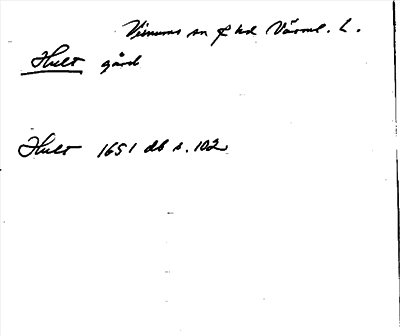 Visnums sn o hd Värml. L.
Hult gård
Hult 1651 db s. 102